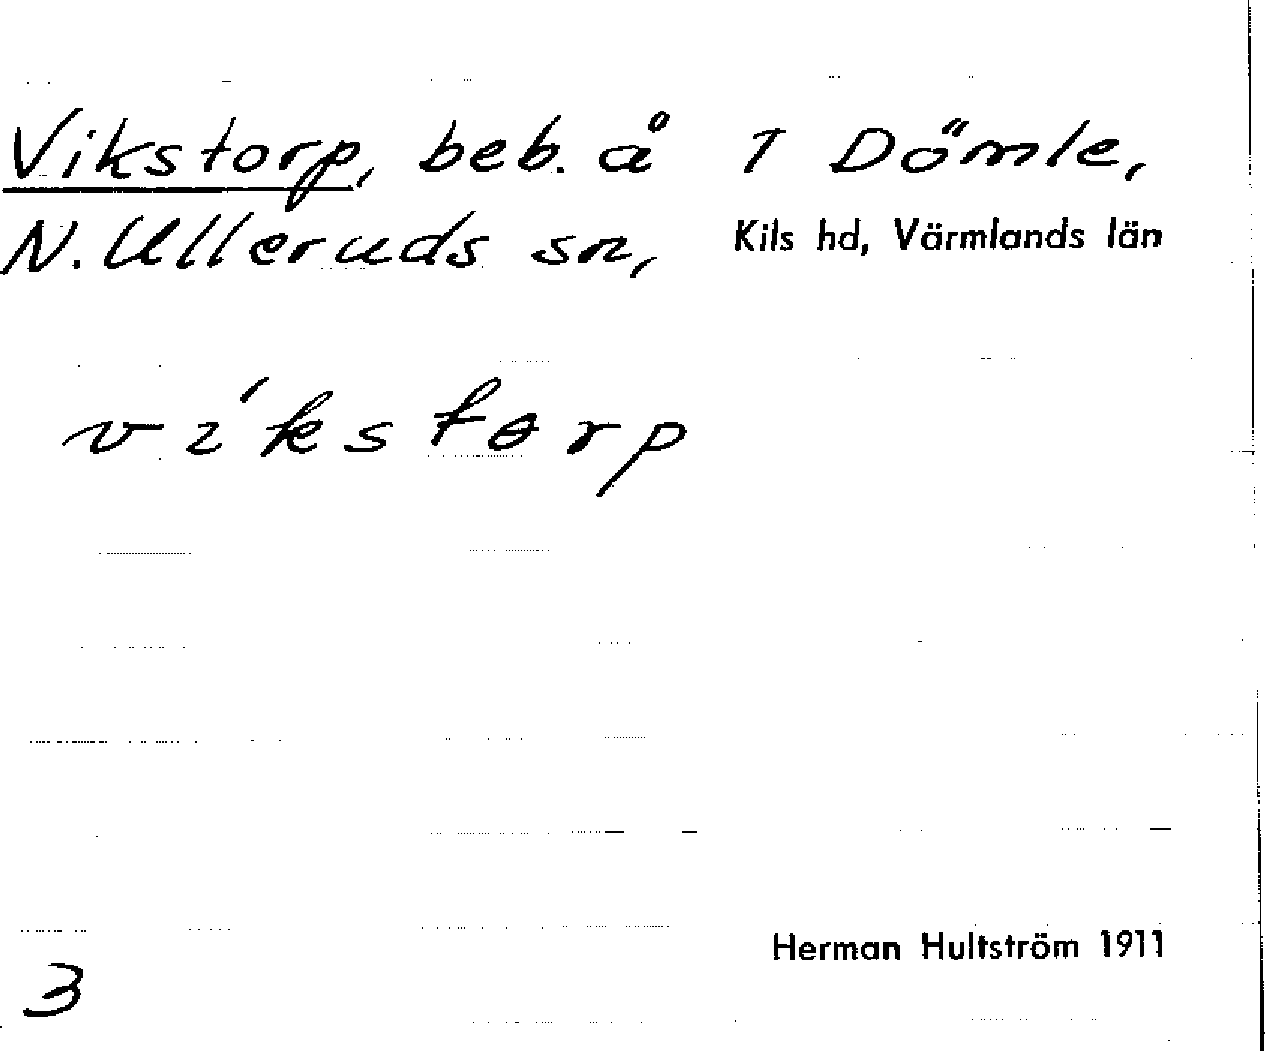 Vikstorp, beb. å 1 Dömle,
N. Ulleruds sn, Kils hd, Värmlands län
víkstɵrp
Herman Hultström 1911
3